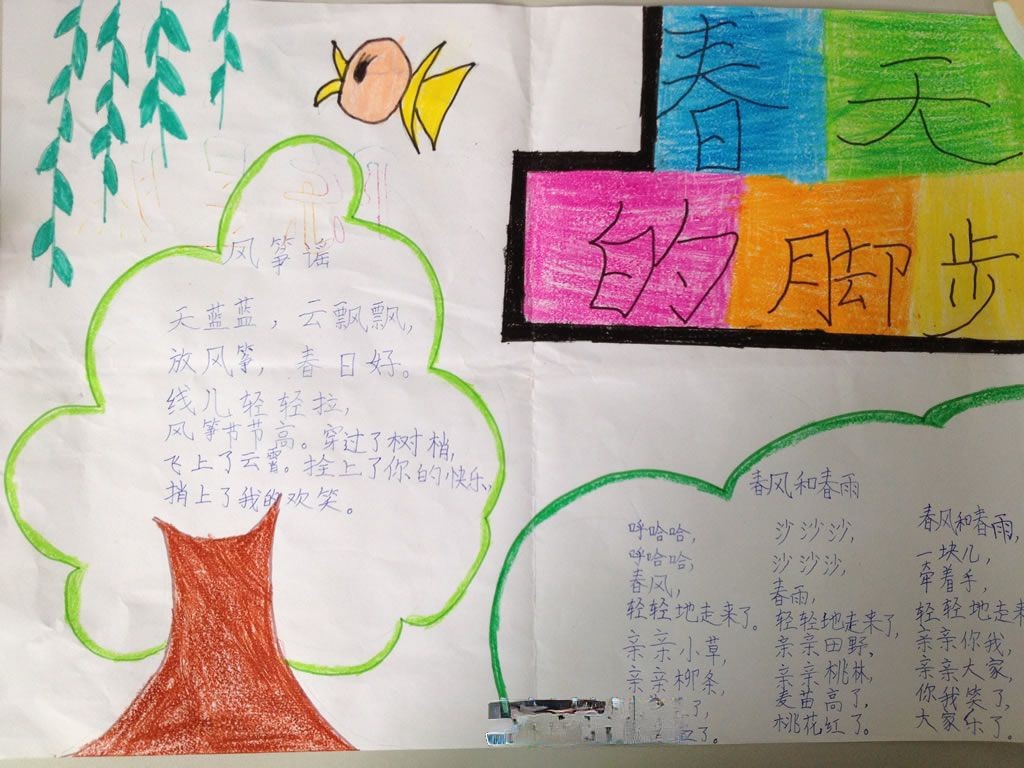 春天
的脚步
风筝谣
天蓝蓝，云飘飘，
放风筝，春日好。
线儿轻轻拉，
风筝节节高。穿过了树梢，
飞上了云霄。拴上了你的快乐，
捎上了我的欢笑。
春风和春雨
呼哈哈，
呼哈哈，
春风，
轻轻地走来了。
亲亲小草，
亲亲柳条，
了，
了。
沙沙沙，
沙沙沙，
春雨，
轻轻地走来了，
亲亲田野，
亲亲桃林，
麦苗高了，
桃花红了。
春风和春雨，
一块儿，
牵着手，
轻轻地走来
亲亲你我，
亲亲大家，
你我笑了，
大家乐了。